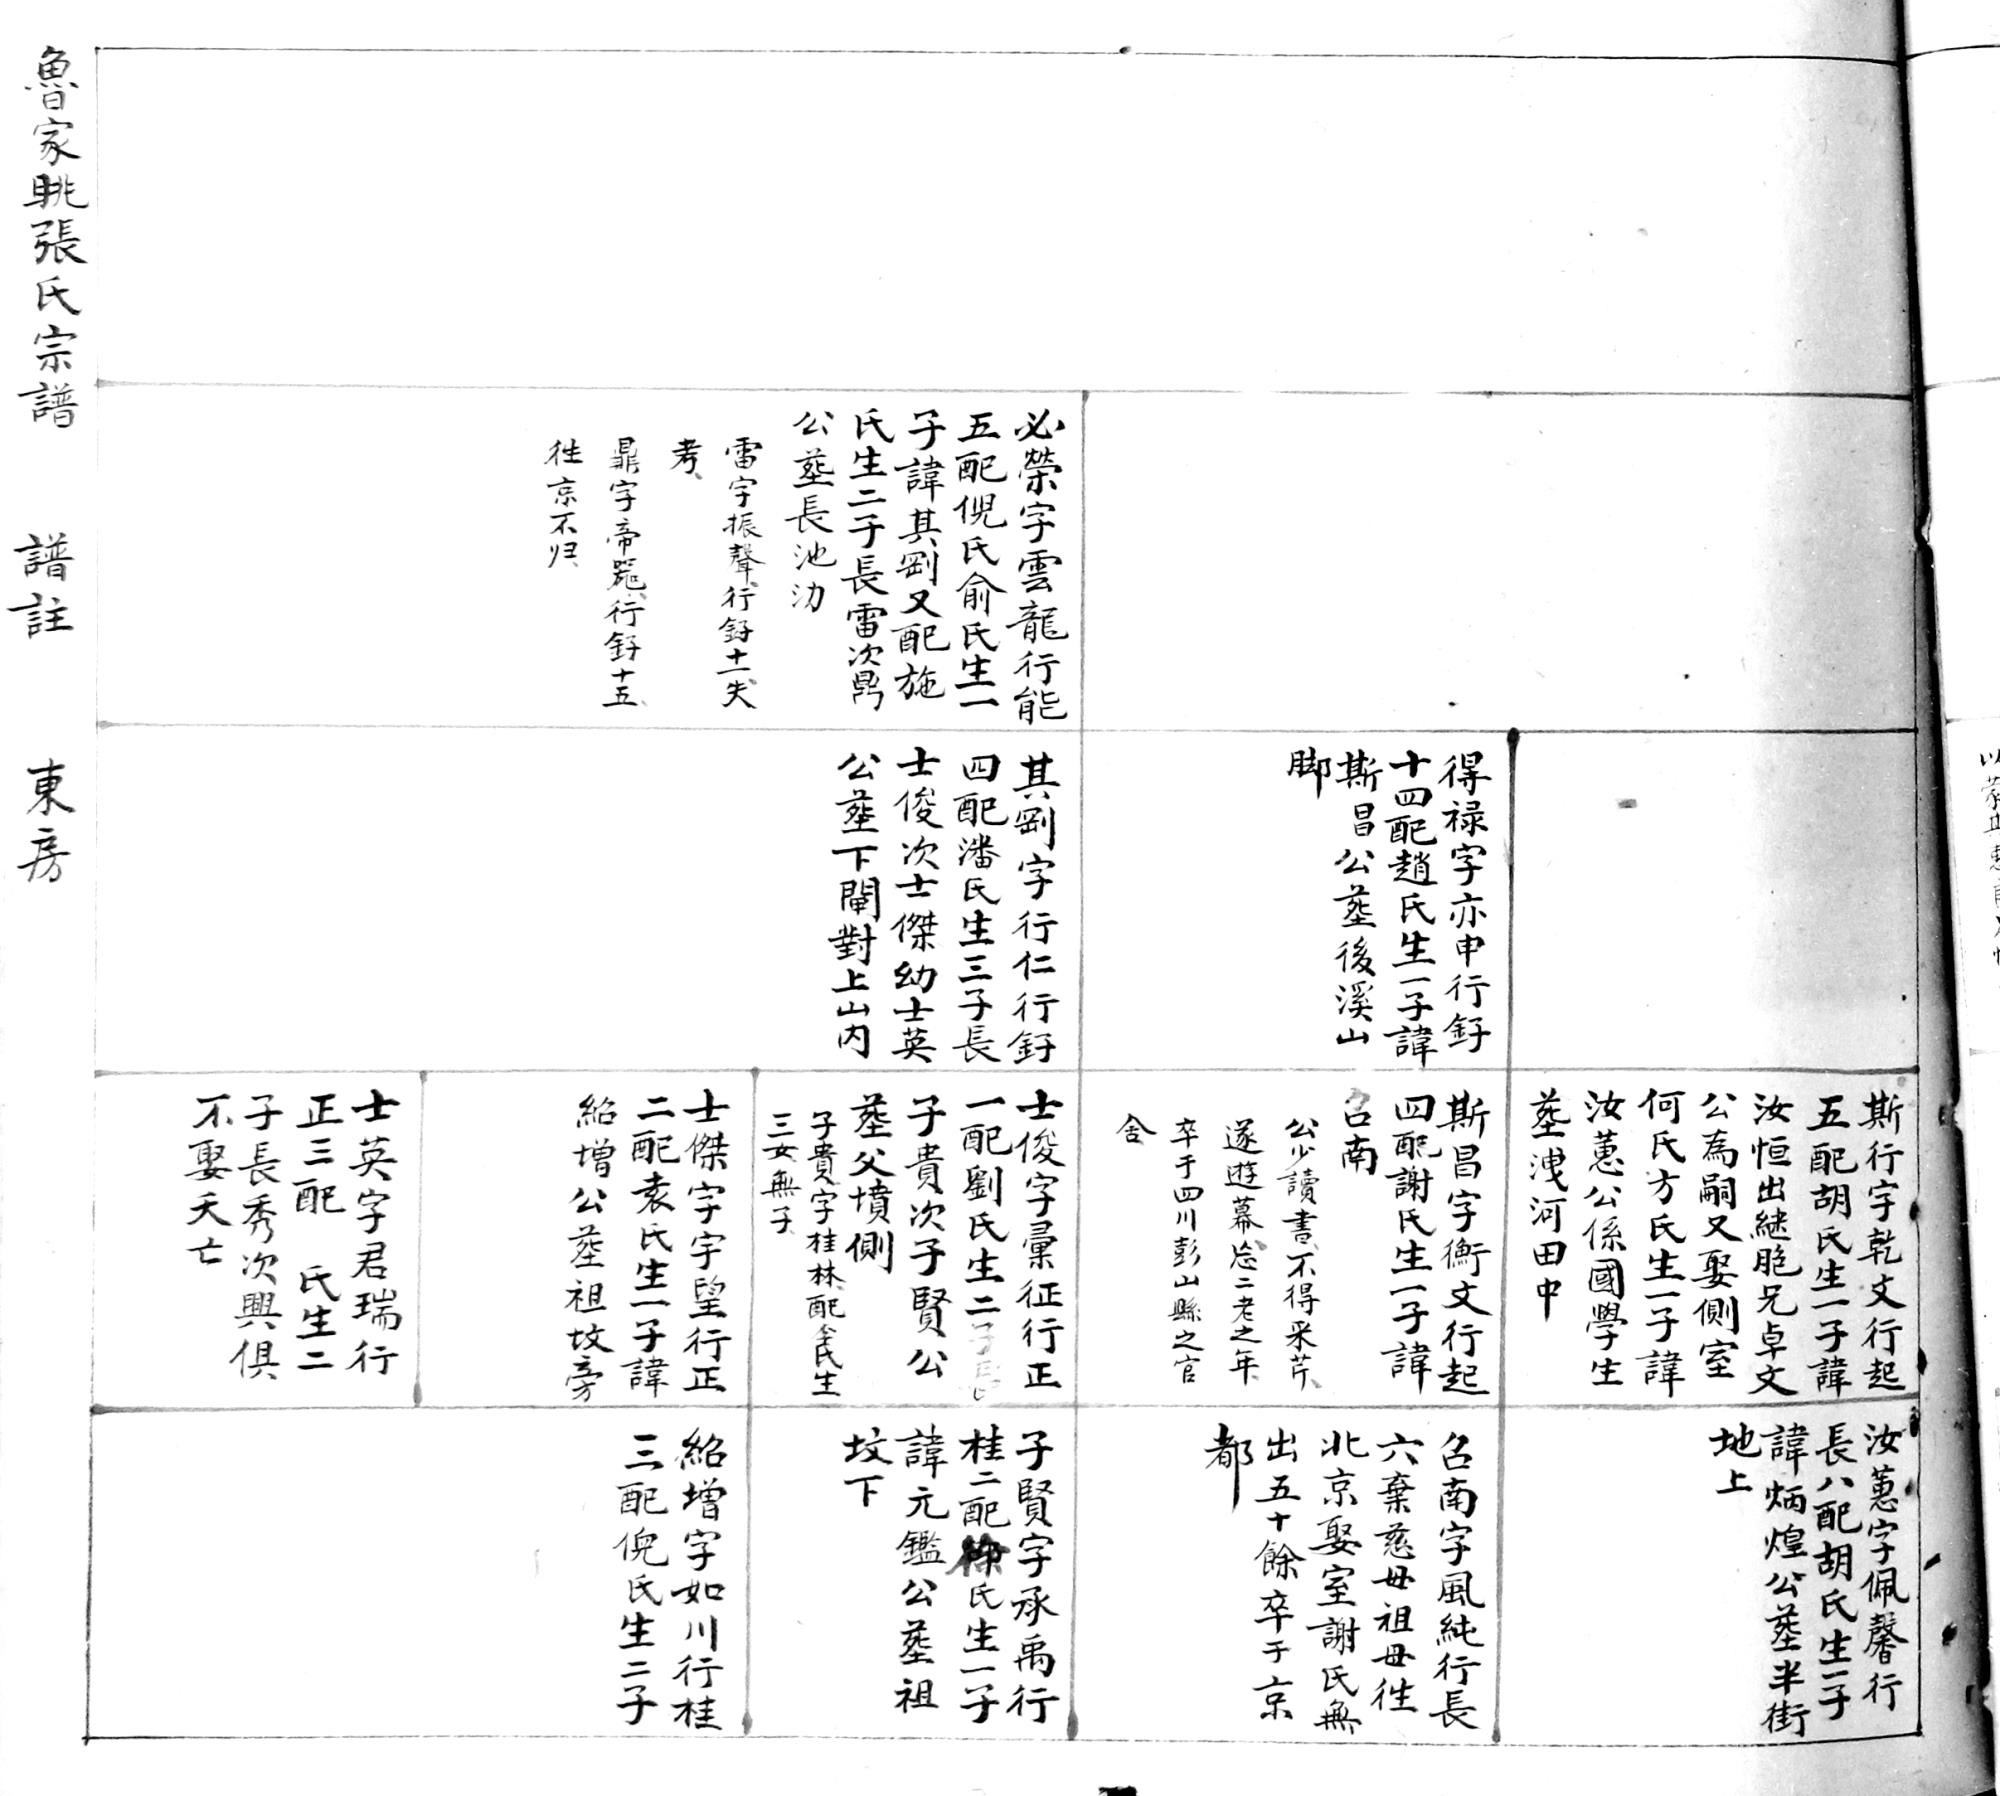 必榮字雲龍行能
五配倪氏俞氏生一
子諱其剛又配施
氏生二子長雷次鼎
公墓長池沕
雷字振聲、行釨十一失
考、
鼎字帝器、行釨十五、
徃京不归、
得禄字亦申行釨
十四配趙氏生一子諱
斯昌公墓後溪山
脚
其剛字行仁行釨
四配潘氏生三子長
士俊次士傑幼士英
公墓下閘對上山内
斯行字乾文行起
五配胡氏生一子諱
汝恒出継胞兄卓文
公為嗣又娶側室
何氏方氏生一子諱
汝蕙公係國學生
墓洩河田中
斯昌字衡文行起
四配謝氏生一子諱
召南
公少讀書、不得采芹、
遂遊幕、念二老之年、
卒于四川彭山縣之官
舍
士俊字彙征行正
一配劉氏生二子長
子貴次子賢公
墓父墳側
子貴字桂林、配余氏生
三女、無子、
士傑字宇望行正
二配袁氏生一子諱
紹增公墓祖坟旁
士英字君瑞行
正三配 氏生二
子長秀次興俱
不娶夭亡
汝蕙字佩馨行
長八配胡氏生一子
諱炳煌公墓半街
地上
召南字風純行長
六棄慈母祖母徃
北京娶室謝氏無
出五十餘卒于京
都
子賢字承禹行
桂二配徐氏生一子
諱元鑑公墓祖
坟下
紹增字如川行桂
三配倪氏生二子
魯家眺張氏宗譜 譜註 東房